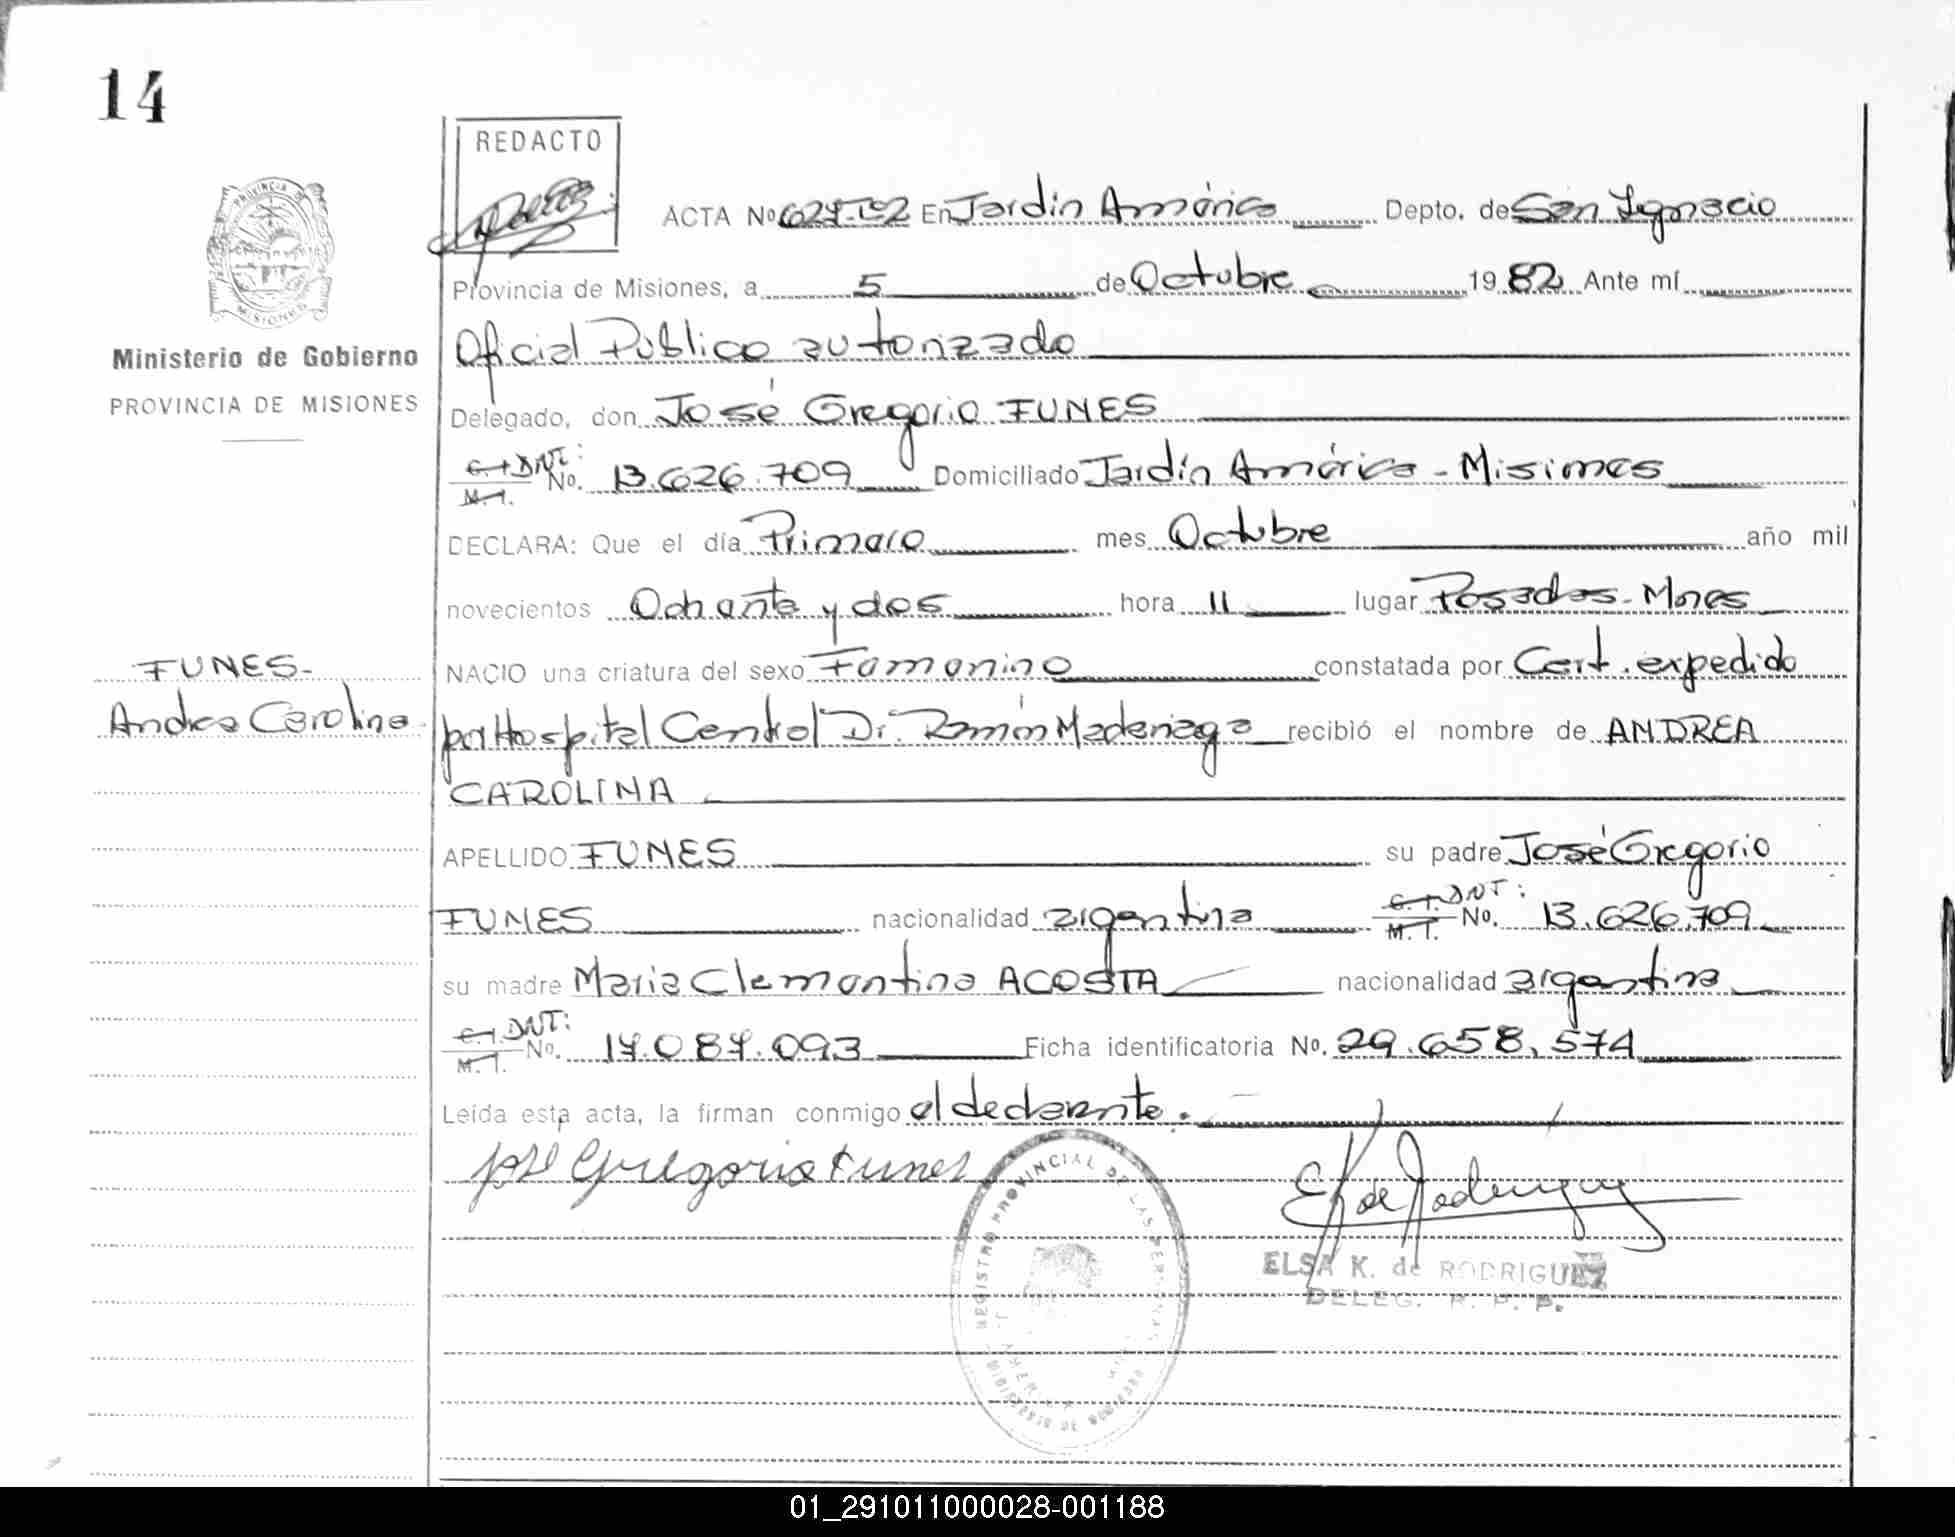 14
REDACTO
PROVINCIA DE
MISIONES
Ministerio de Gobierno
PROVINCIA DE MISIONES
FUNES-
Andrea Carolina
ACTA No En Jardín América Depto. de San Ignacio
Provincia de Misiones, a 5 de Octubre 1982 Ante mí
Oficial Público autorizado
Delegado, don José Gregorio FUNES
C.I. DNI: M.I. No. 13.626.709 Domiciliado Jardín América - Misiones
DECLARA: Que el día Primero mes Octubre año mil
novecientos Ochenta y dos hora 11 lugar Posadas - Mnes
NACIO una criatura del sexo Femenino constatada por Cert. expedido
por Hospital Central Dr. Ramón Madariaga recibió el nombre de ANDREA
CAROLINA
APELLIDO FUNES su padre José Gregorio
FUNES nacionalidad argentina C.I. DNI: M.I. No. 13.626.709
su madre Maria Clementina ACOSTA nacionalidad argentina
C.I. DNI: M.I. No. 14.084.093 Ficha identificatoria No. 29.658.574
Leída esta acta, la firman conmigo el declarante.
José Gregorio Funes
E K de Rodriguez
REGISTRO PROVINCIAL DE LAS PERSONAS
MINISTERIO DE GOBIERNO
ELSA K. de RODRIGUEZ
DELEG. R. P. P.
01_291011000028-001188